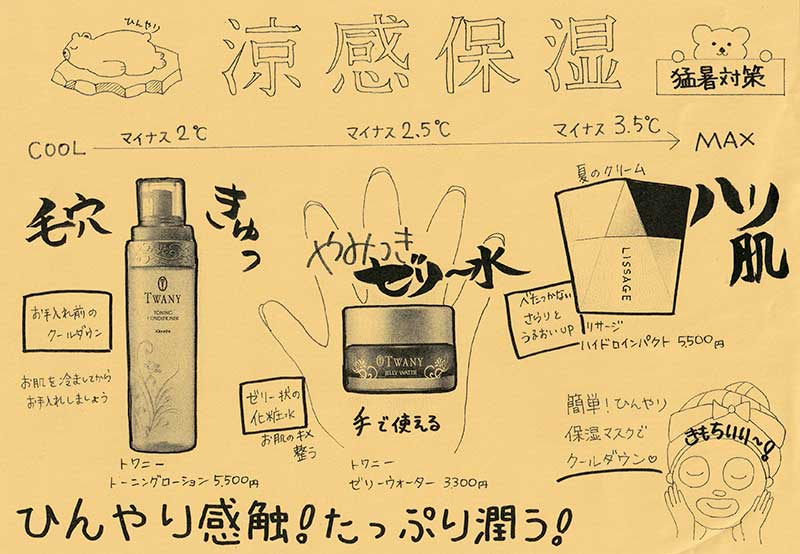 ひんやり
涼感保湿
猛暑対策
COOL
マイナス2℃
マイナス2.5℃
マイナス3.5℃
MAX
毛穴
きゅっ
TWANY
TONING
CONDITIONER
Kanebo
お手入れ前の
クールダウン
お肌を冷ましてから
お手入れしましょう
トワニー
トーニングローション 5,500円
やみつき
ゼリ〜水
TWANY
JELLY WATER
ゼリー状の
化粧水
お肌のキメ
整う
手で使える
トワニー
ゼリーウォーター 3300円
夏のクリーム
LISSAGE
ハリ
肌
べたつかない
さらりと
うるおいUP
リサージ
ハイドロインパクト 5,500円
簡単!ひんやり
保湿マスクで
クールダウン♡
きもちいい〜!
ひんやり感触!たっぷり潤う!